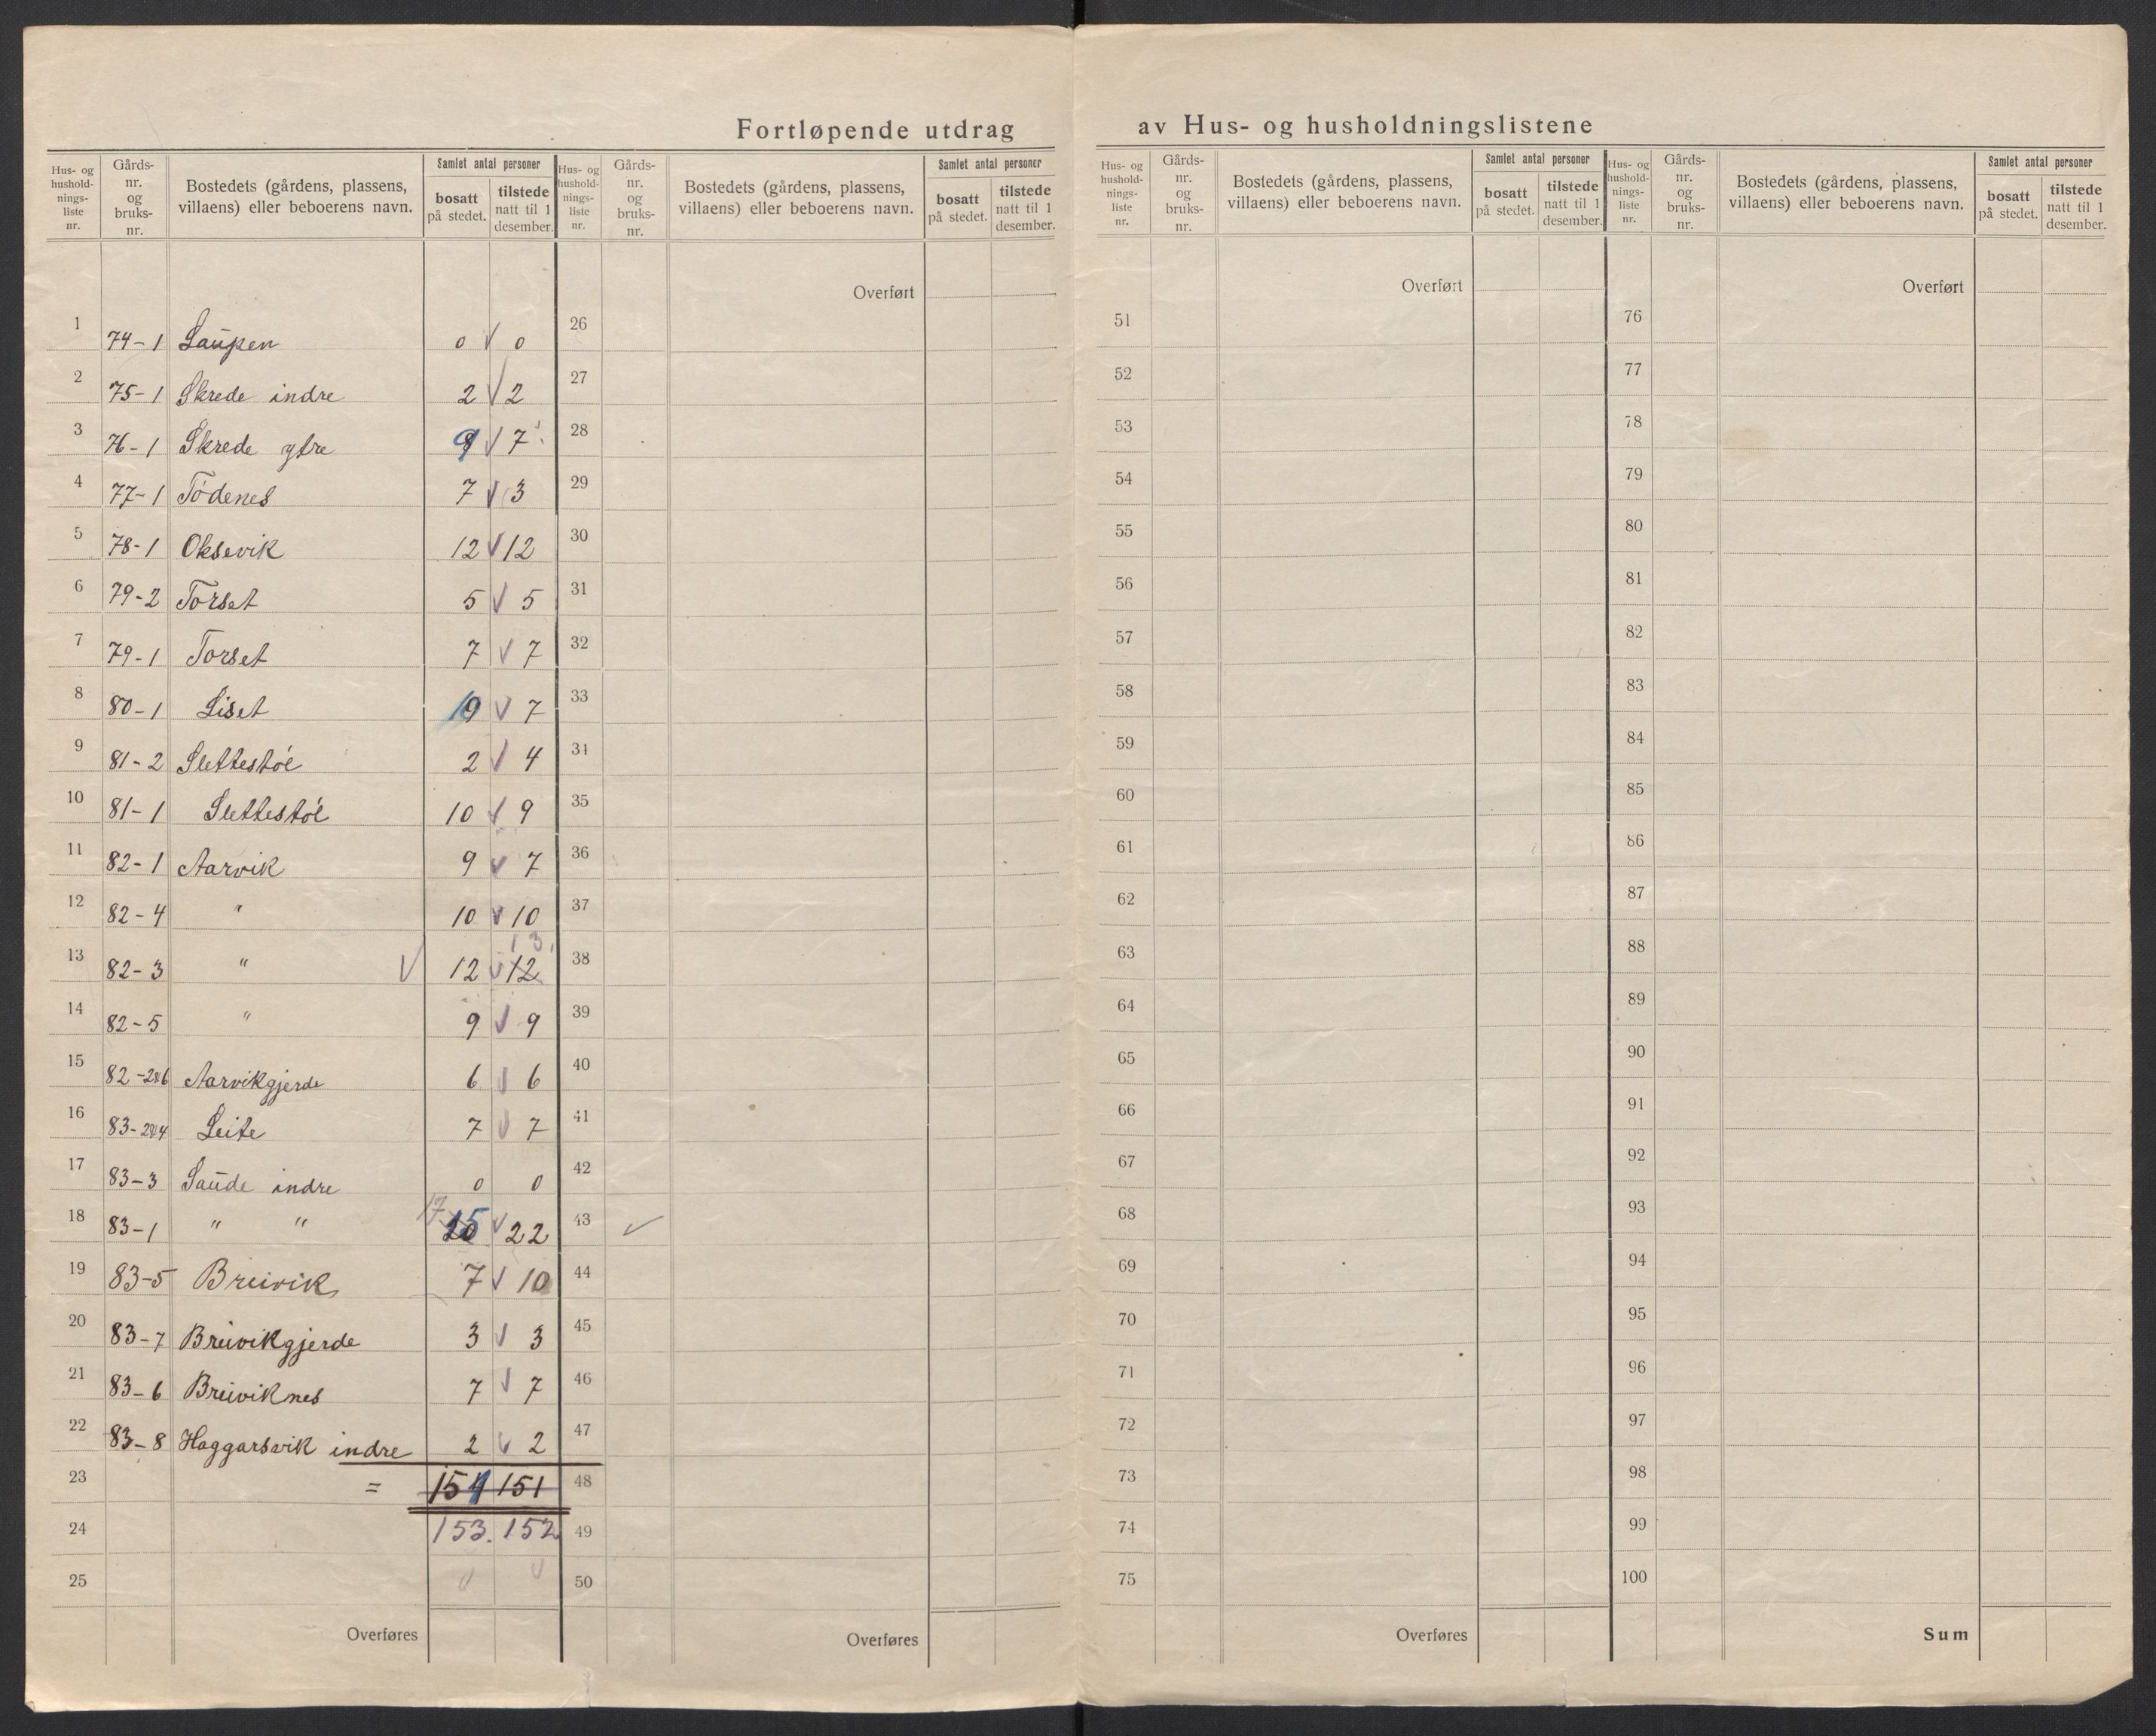 Fortløpende utdrag av Hus- og husholdningslistene
Hus- og hushold-nings-liste nr. Gårds-nr. og bruks-nr. Bostedets (gårdens, plassens, villaens) eller beboerens navn. Samlet antal personer bosatt på stedet. tilstede natt til 1 desember.
Hus- og hushold-nings-liste nr. Gårds-nr. og bruks-nr. Bostedets (gårdens, plassens, villaens) eller beboerens navn. Samlet antal personer bosatt på stedet. tilstede natt til 1 desember.
Hus- og hushold-nings-liste nr. Gårds-nr. og bruks-nr. Bostedets (gårdens, plassens, villaens) eller beboerens navn. Samlet antal personer bosatt på stedet. tilstede natt til 1 desember.
Hus- og hushold-nings-liste nr. Gårds-nr. og bruks-nr. Bostedets (gårdens, plassens, villaens) eller beboerens navn. Samlet antal personer bosatt på stedet. tilstede natt til 1 desember.
Overført Overført Overført
1 74-1 Laupen 0 √ 0 26 51 76
2 75-1 Skrede indre 2 √ 2 27 52 77
3 76-1 Skrede ytre 9 √ 7 28 53 78
4 77-1 Tödenes 7 √ 3 29 54 79
5 78-1 Oksevik 12 √ 12 30 55 80
6 79-2 Torset 5 √ 5 31 56 81
7 79-1 Torset 7 √ 7 32 57 82
8 80-1 Liset 10 √ 7 33 58 83
9 81-2 Slettestöl 2 √ 4 34 59 84
10 81-1 Slettestöl 10 √ 9 35 60 85
11 82-1 Aarvik 9 √ 7 36 61 86
12 82-4 " 10 √ 10 37 62 87
13 82-3 " √ 12 √ 12 13 38 63 88
14 82-5 " 9 √ 9 39 64 89
15 82-2&6 Aarvikgjerde 6 √ 6 40 65 90
16 83-2&4 Leite 7 √ 7 41 66 91
17 83-3 Saude indre 0 0 42 67 92
18 83-1 " " 17 15 √ 22 43 √ 68 93
19 83-5 Breivik 7 √ 10 44 69 94
20 83-7 Breivikgjerde 3 √ 3 45 70 95
21 83-6 Breiviknes 7 √ 7 46 71 96
22 83-8 Haggarsvik indre 2 √ 2 47 72 97
23 = 151 151 48 73 98
24 153. 152 49 74 99
25 √ √ 50 75 100
Overføres Overføres Overføres Sum